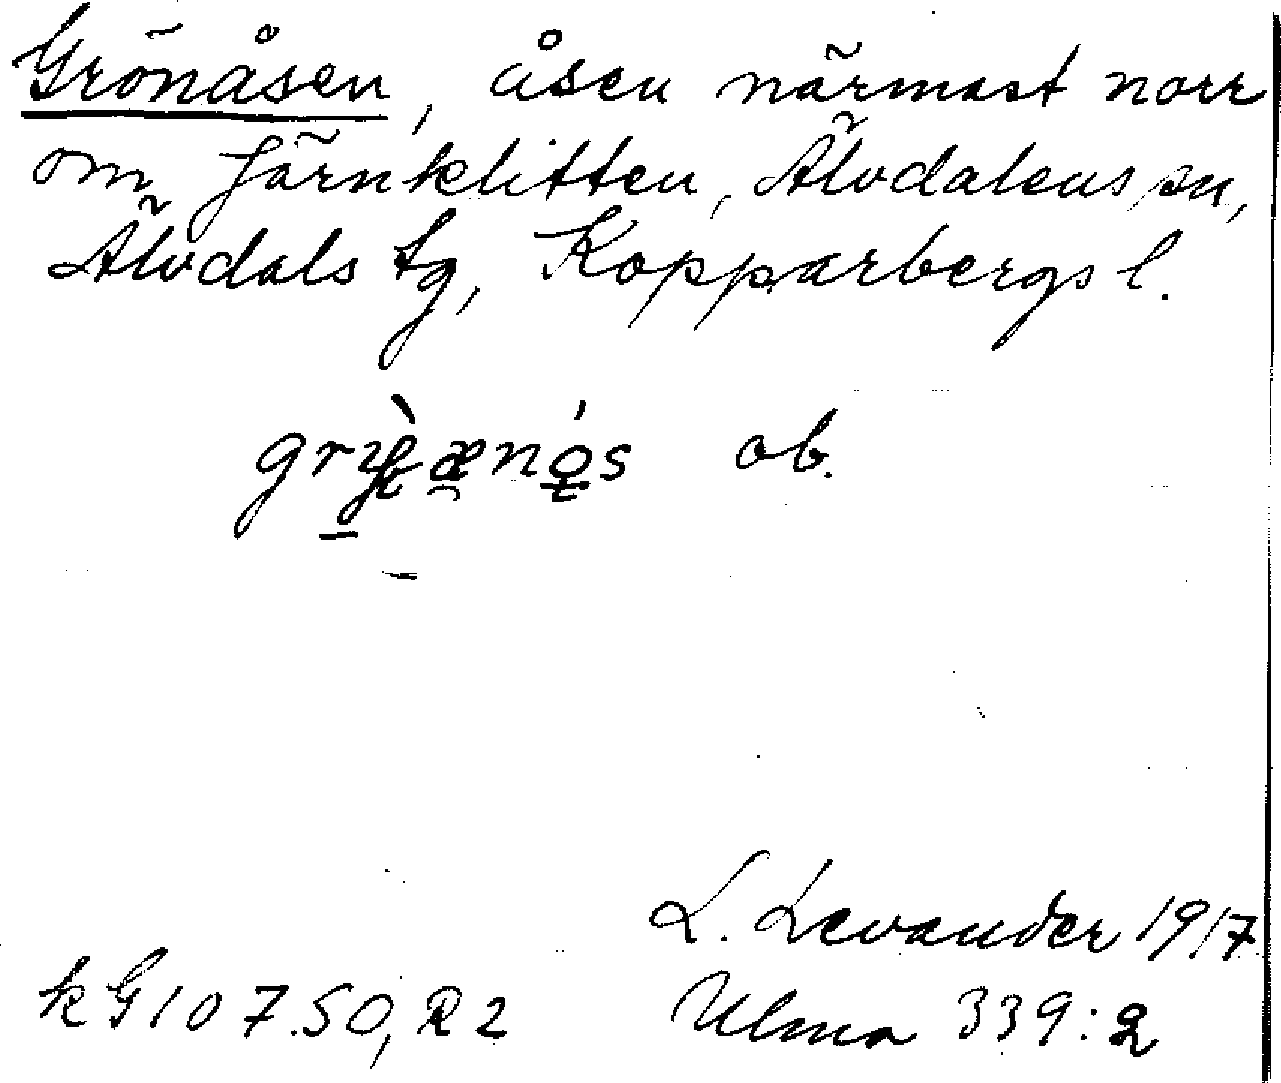 Grönåsen, åsen närmast norr
om Järnklitten, Älvdalens sn,
Älvdals tg, Kopparbergs l.
ob.
L. Levander 1917
kG107.50, R2 Ulma 339:2